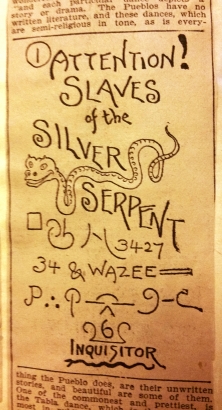 and each particular dance depicts a
story or drama. The Pueblos have no
written literature, and these dances, which
are semi-religious in tone, as is every-
1 ATTENTION!
SLAVES
of the
SILVER
SERPENT
3427
34 & WAZEE
P∴P 9-C
26
INQUISITOR
thing the Pueblo does, are their unwritten
stories, and beautiful are some of them.
One of the commonest and prettiest,
the Tabla dance, which
most